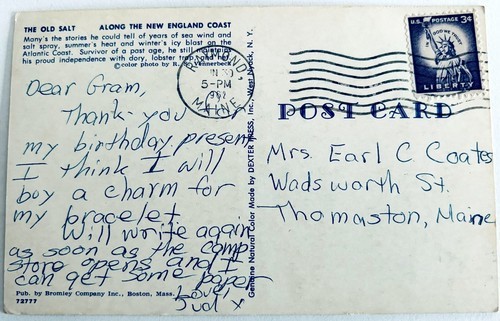 THE OLD SALT ALONG THE NEW ENGLAND COAST
Many's the stories he could tell of years of sea wind and
salt spray, summer's heat and winter's icy blast on the
Atlantic Coast. Survivor of a past age, he still maintains
his proud independence with dory, lobster trap and
©color photo by R. Vennerbeck
Dear Gram,
Thank-you
my birthday present
I think I will
boy a charm for
my bracelet.
Will write again
as soon as the camp
store opens and I
can get some paper
Love,
Judi x
Pub. by Bromley Company Inc., Boston, Mass.
72777
Genuine Natural Color Made by DEXTER PRESS, Inc. West Nyack, N. Y.
RAYMOND
5-PM
MAINE
U.S. POSTAGE 3¢
IN GOD WE TRUST
LIBERTY
POST CARD
Mrs. Earl C Coates
Wadsworth St.
Thomaston, Maine